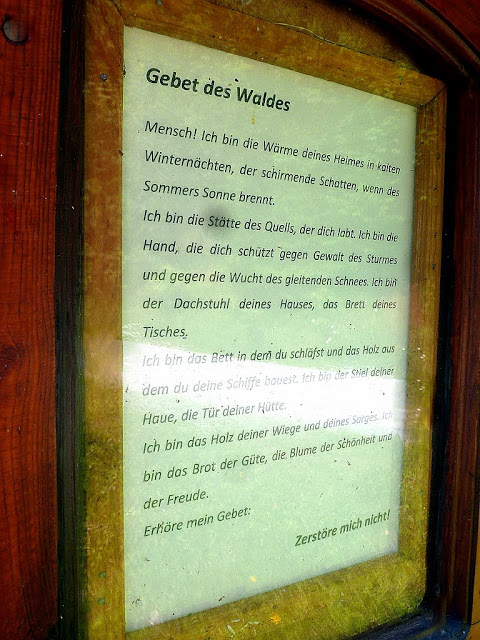 Gebet des Waldes
Mensch! Ich bin die Wärme deines Heimes in kalten
Winternächten, der schirmende Schatten, wenn des
Sommers Sonne brennt.
Ich bin die Stätte des Quells, der dich labt. Ich bin die
Hand, die dich schützt gegen Gewalt des Sturmes
und gegen die Wucht des gleitenden Schnees. Ich bin
der Dachstuhl deines Hauses, das Brett deines
Tisches.
Ich bin das Bett in dem du schläfst und das Holz aus
dem du deine Schiffe bauest. Ich bin der Stiel deiner
Haue, die Tür deiner Hütte.
Ich bin das Holz deiner Wiege und deines Sarges. Ich
bin das Brot der Güte, die Blume der Schönheit und
der Freude.
Erhöre mein Gebet:
Zerstöre mich nicht!